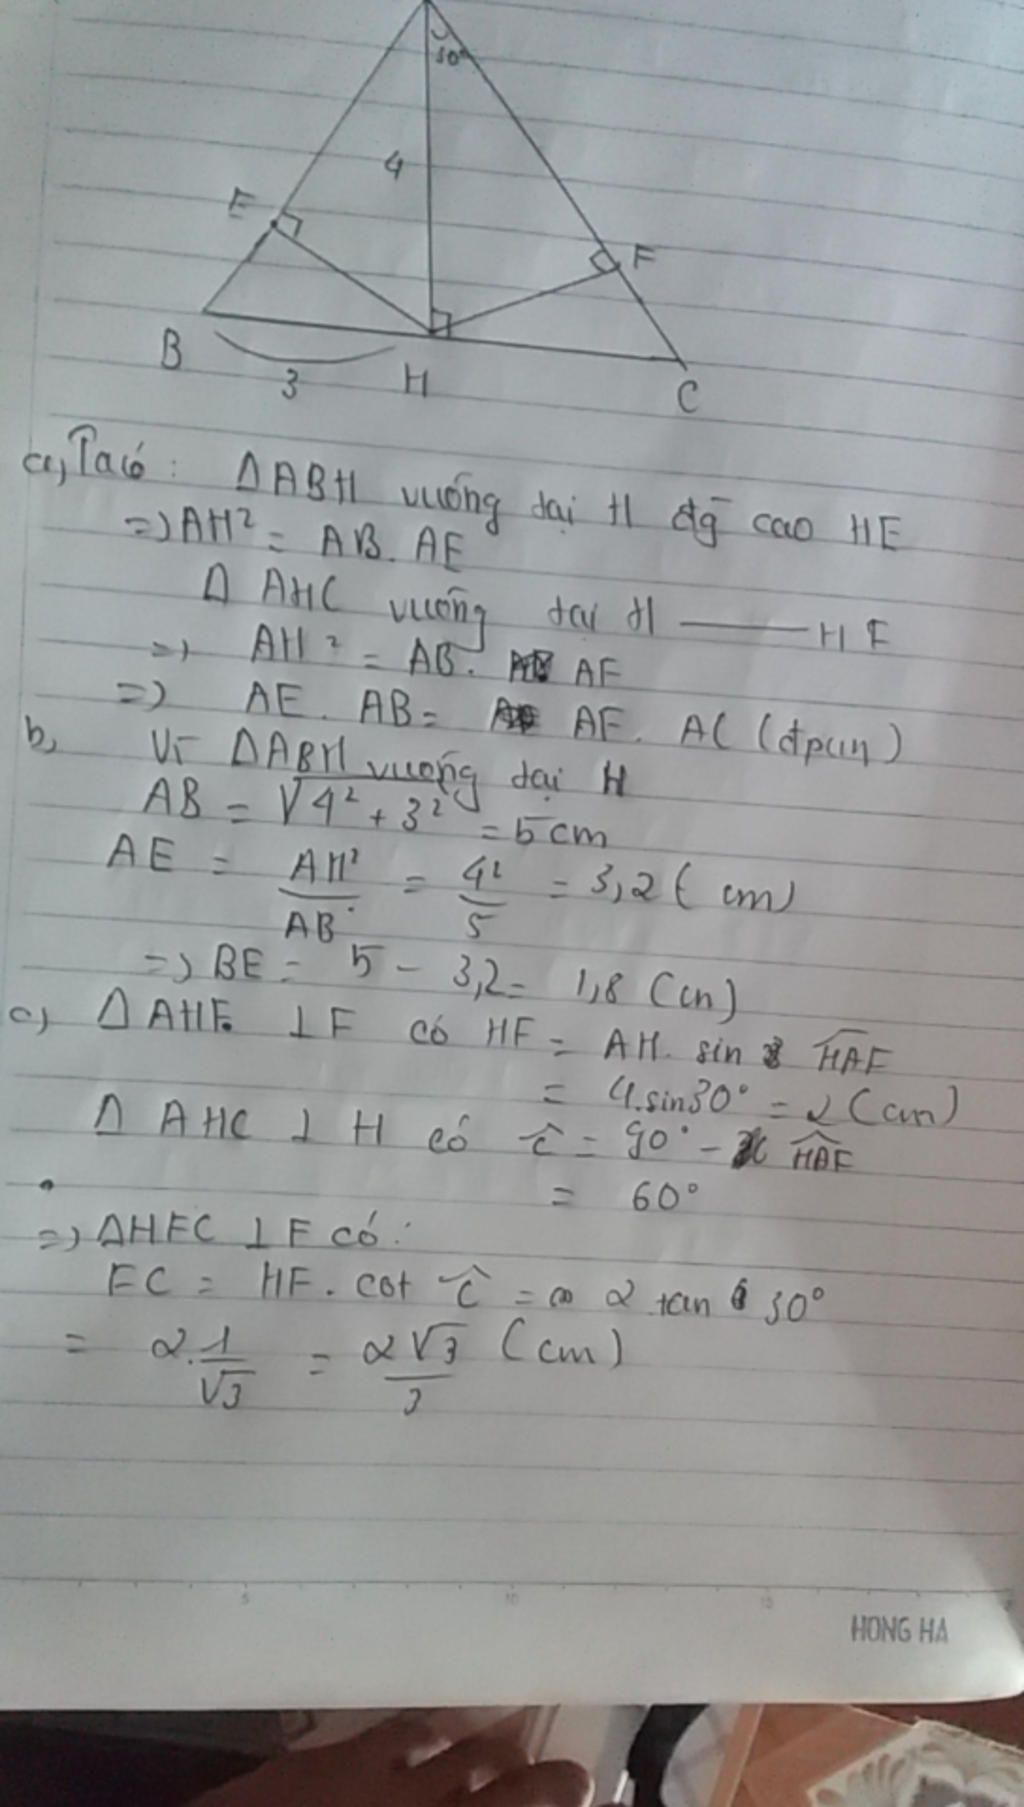 30°
4
E
F
B
3
H
C
a, Ta có: ΔABH vuông tại H đg cao HE
=> AH² = AB. AE
Δ AHC vuông tại H —— HF
=> AH² = AB. AF
=> AE. AB = AF. AC (đpcm)
b, Vì ΔABH vuông tại H
AB = √4² + 3² = 5cm
AE = AH²/AB = 4²/5 = 3,2 (cm)
=> BE = 5 - 3,2 = 1,8 (cm)
c, Δ AHF ⊥ F có HF = AH. sin HAF
= 4.sin30° = 2 (cm)
Δ AHC ⊥ H có Ĉ = 90° - HAF
= 60°
=> ΔHFC ⊥ F có:
FC = HF. cot Ĉ = 2 tan 30°
= 2. 1/√3 = 2√3/3 (cm)
5 10 15
HONG HA